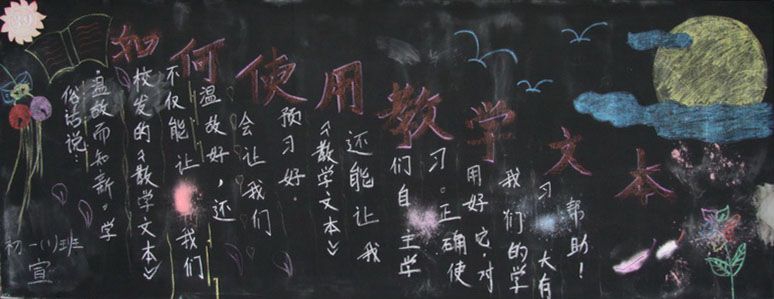 如何使用数学文本
俗话说：
温故而知新。学
校发的《数学文本》
不仅能让我们
温故好，还
会让我们
预习好。
《数学文本》
还能让我
们自主学
习。正确使
用好它，对
我们的学
习大有
帮助！
初一(1)班
宣